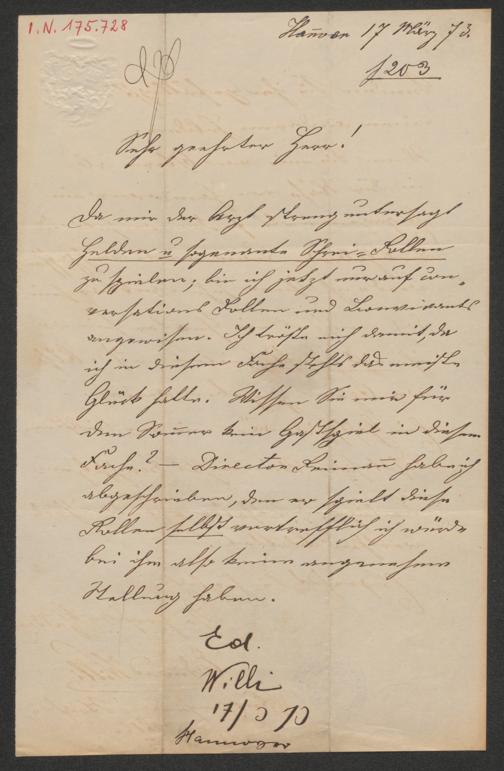 I. N. 175.728
Hannover 17 März 73.
1203
Sehr geehrter Herr!
Da mir der Arzt streng untersagt
Helden u sogenannte Schrei=Rollen
zu spielen, bin ich jetzt nur auf Con-
versations Rollen und Bonvivants
angewisen. Ich tröste mich damit, da
ich in diesem Fache stehts das meiste
Glück hatte. Wissen Sie mir für
den Som̅er kein Gastspiel in diesem
Fache.? — Director Reiman̅ habe ich
abgeschrieben, den er spielt diese
Rollen selbst vortrefflich ich würde
bei ihm also keine angenehme
Stellung haben.
Ed.
Willi
17/3 73
Hannover